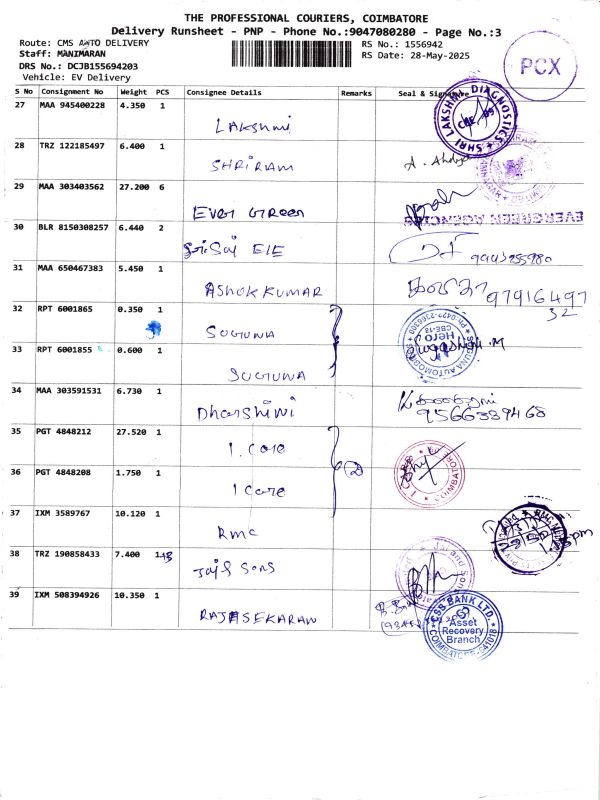 THE PROFESSIONAL COURIERS, COIMBATORE
Delivery Runsheet - PNP - Phone No.:9047080280 - Page No.:3
Route: CMS AUTO DELIVERY
RS No.: 1556942
Staff: MANIMARAN
RS Date: 28-May-2025
DRS No.: DCJB155694203
Vehicle: EV Delivery
PCX
S No Consignment No Weight PCS Consignee Details Remarks Seal & Signature
27 MAA 945400228 4.350 1
LAKSHMI
SHRI LAKSHMI DIAGNOSTICS
28 TRZ 122185497 6.400 1
SHRIRAM
29 MAA 303403562 27.200 6
EVER GREEN
EVERGREEN AGENCIES
30 BLR 8150308257 6.440 2
Sri Sai ELE
31 MAA 650467383 5.450 1
ASHOK KUMAR
97916497
32
32 RPT 6001865 0.350 1
SUGUNA
SUGUNA AUTOMOBILES
Hero
33 RPT 6001855 0.600 1
SUGUNA
34 MAA 303591531 6.730 1
Dharshini
9566389468
35 PGT 4848212 27.520 1
I. care
36 PGT 4848208 1.750 1
I care
I CARE
COIMBATORE
37 IXM 3589767 10.120 1
RMC
38 TRZ 190858433 7.400 1
Jai & Sons
39 IXM 508394926 10.350 1
RAJASEKARAN
CSB BANK LTD.
Asset
Recovery
Branch
COIMBATORE-641018